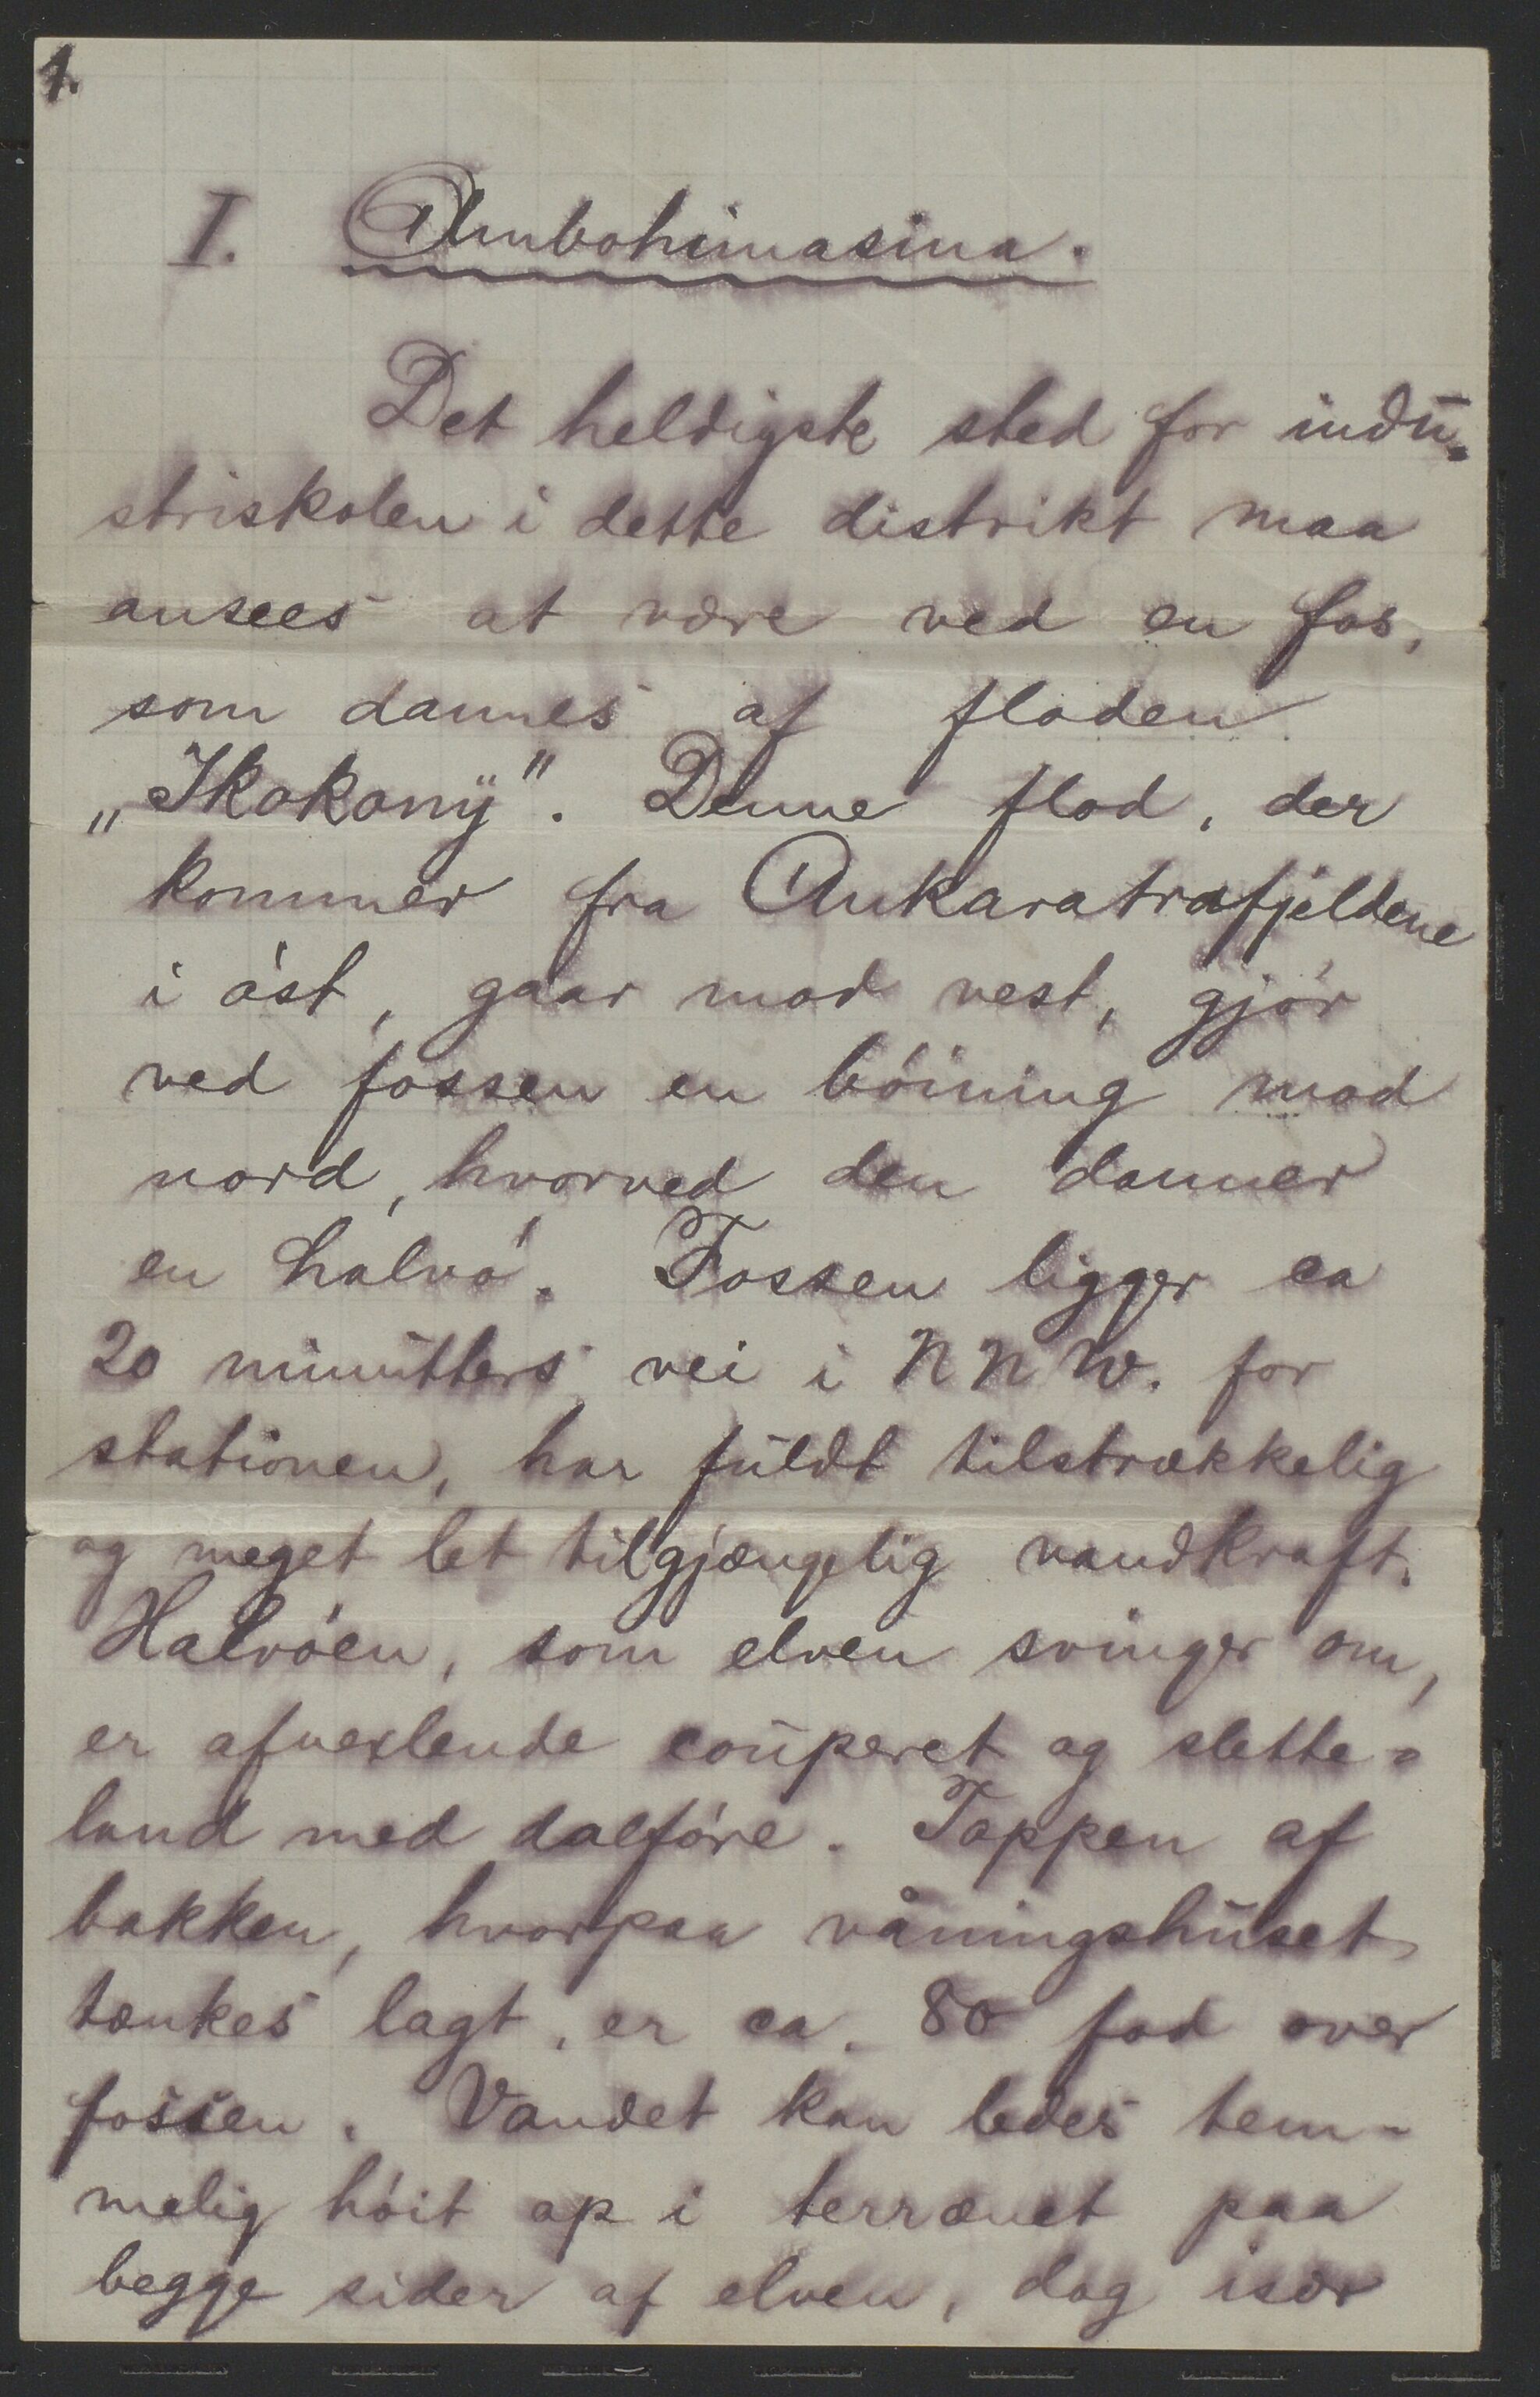 1.
I. Ambohimasina.
Det heldigste sted for indu-
striskolen i dette distrikt maa
ansees at være ved en fos,
som dannes af floden
„Ikokomy". Denne flod, der
kommer fra Ankaratrafjeldene
i óst, gaar mod vest, gjór
ved fossen en bóining mod
nord, hvorved den danner
en halvó. Fossen ligger ca
20 minutters vei i NNW. for
stationen, har fuldt tilstrækkelig
og meget let tilgjængelig vandkraft.
Halvóen, som elven svinger om,
er afvexlende couperet og slette-
land med dalfóre. Toppen af
bakken, hvorpaa våningshuset
tænkes lagt, er ca. 80 fod over
fossen. Vandet kan ledes tem-
melig hóit op i terrænet paa
begge sider af elven, dog især